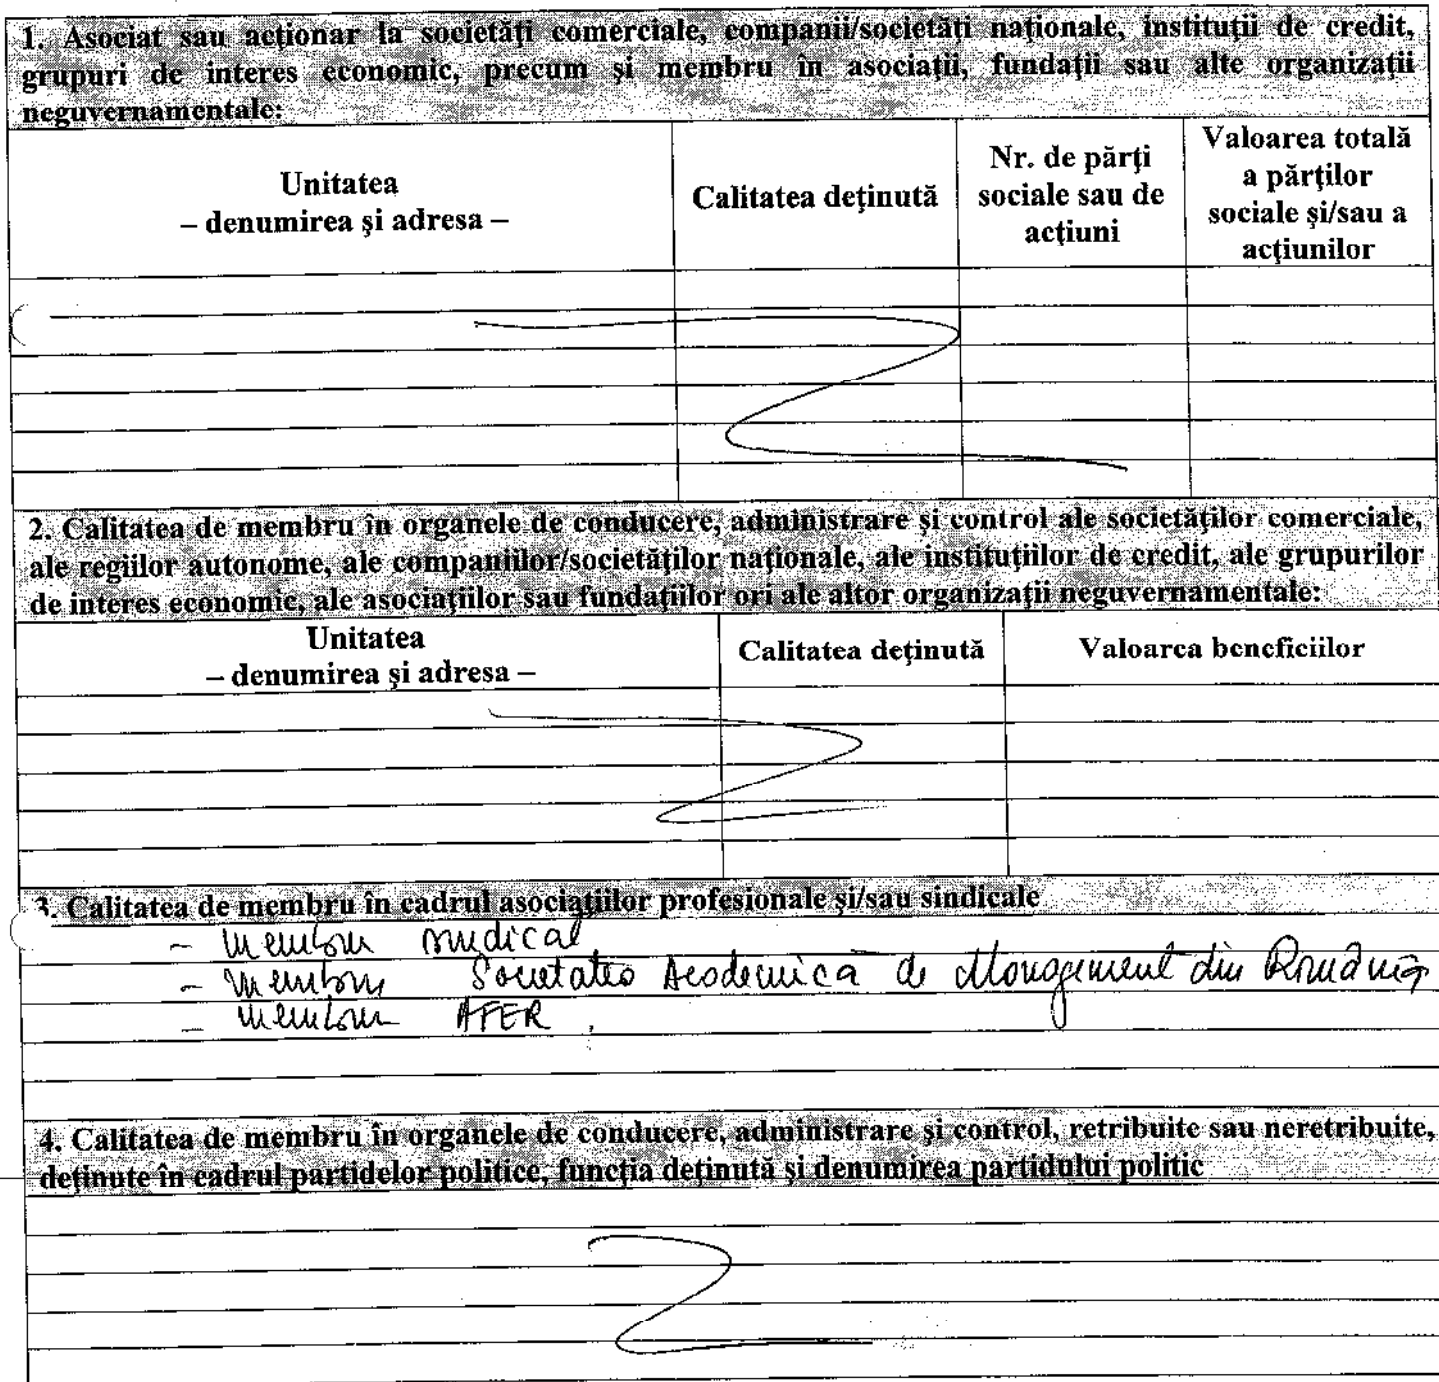 1. Asociat sau acționar la societăți comerciale, companii/societăți naționale, instituții de credit,
grupuri de interes economic, precum și membru în asociații, fundații sau alte organizații
neguvernamentale:
Unitatea
– denumirea și adresa –
Calitatea deținută
Nr. de părți
sociale sau de
acțiuni
Valoarea totală
a părților
sociale și/sau a
acțiunilor
2. Calitatea de membru în organele de conducere, administrare și control ale societăților comerciale,
ale regiilor autonome, ale companiilor/societăților naționale, ale instituțiilor de credit, ale grupurilor
de interes economic, ale asociațiilor sau fundațiilor ori ale altor organizații neguvernamentale:
Unitatea
– denumirea și adresa –
Calitatea deținută
Valoarea beneficiilor
3. Calitatea de membru în cadrul asociațiilor profesionale și/sau sindicale
- membru sindical
- membru Societatea Academică de Management din România
- membru AFER.
4. Calitatea de membru în organele de conducere, administrare și control, retribuite sau neretribuite,
deținute în cadrul partidelor politice, funcția deținută și denumirea partidului politic